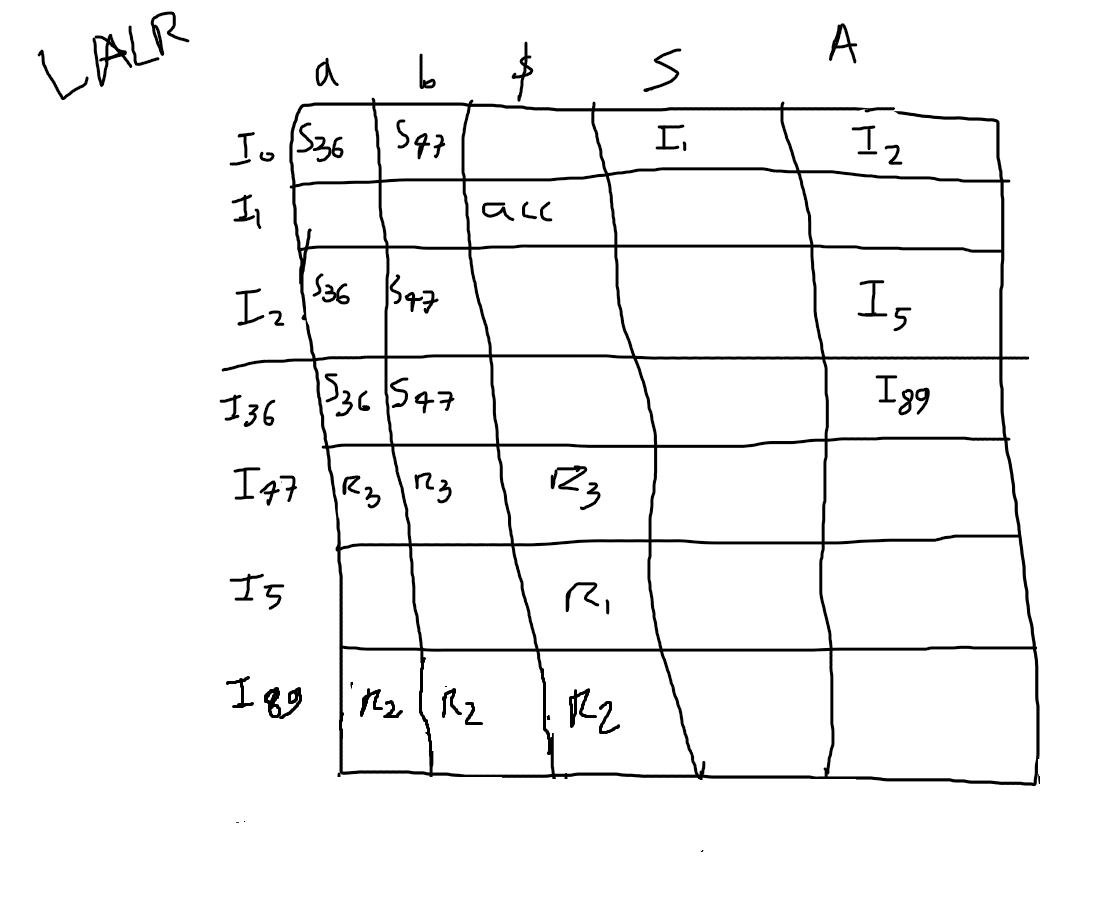 LALR
a b $ S A
I0 S36 S47 I1 I2
I1 acc
I2 S36 S47 I5
I36 S36 S47 I89
I47 R3 R3 R3
I5 R1
I89 R2 R2 R2